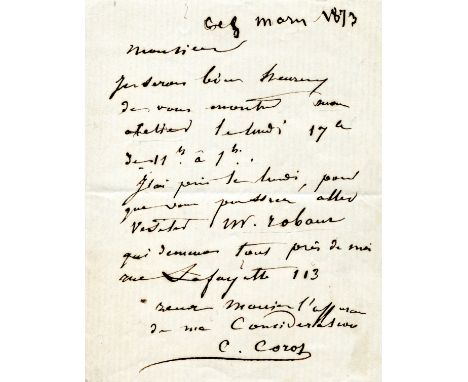 ce 8 mars 1873
Monsieur
Je serais bien heureux
de vous montrer mon
atelier le lundi 17 de
de 11h. à 1h.
J'ai pris le lundi, pour
que vous puissiez aller
visiter M. robaut
qui demeure tout près de moi
rue Lafayette 113
recevez Monsieur l'assurance
de ma Consideration
C. Corot